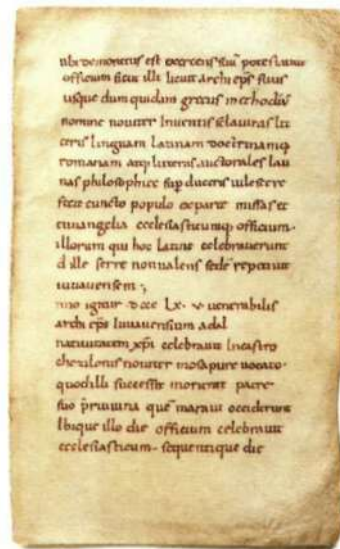 ubi demoratus est exercens suū potestatiue
officium sicut illi licuit archi eps suus
usque dum quidam grecus methodius
nomine nouiter inuentis sclauinis lit
teris linguam latinam doctrinamq;
romanam atq; literas auctorales lati
nas philosophice sup ducens uilescere
fecit cuncto populo ex parte missas et
euuangelia ecclesiasticumq; officium.
illorum qui hoc latine celebrauerunt
d ille ferre non ualens sedē repetiuit
iuuauensem ;,
nno igitur dccc Lx. v. uenerabilis
archi eps Iuuauensium adal
natiuitatem xpi celebrauit In castro
chezilonis nouiter mosapurc uocato.
quod illi successit morient patre
suo priuuina quē maraui occiderunt
Ibique illo die officium celebrauit
ecclesiasticum. sequentique die